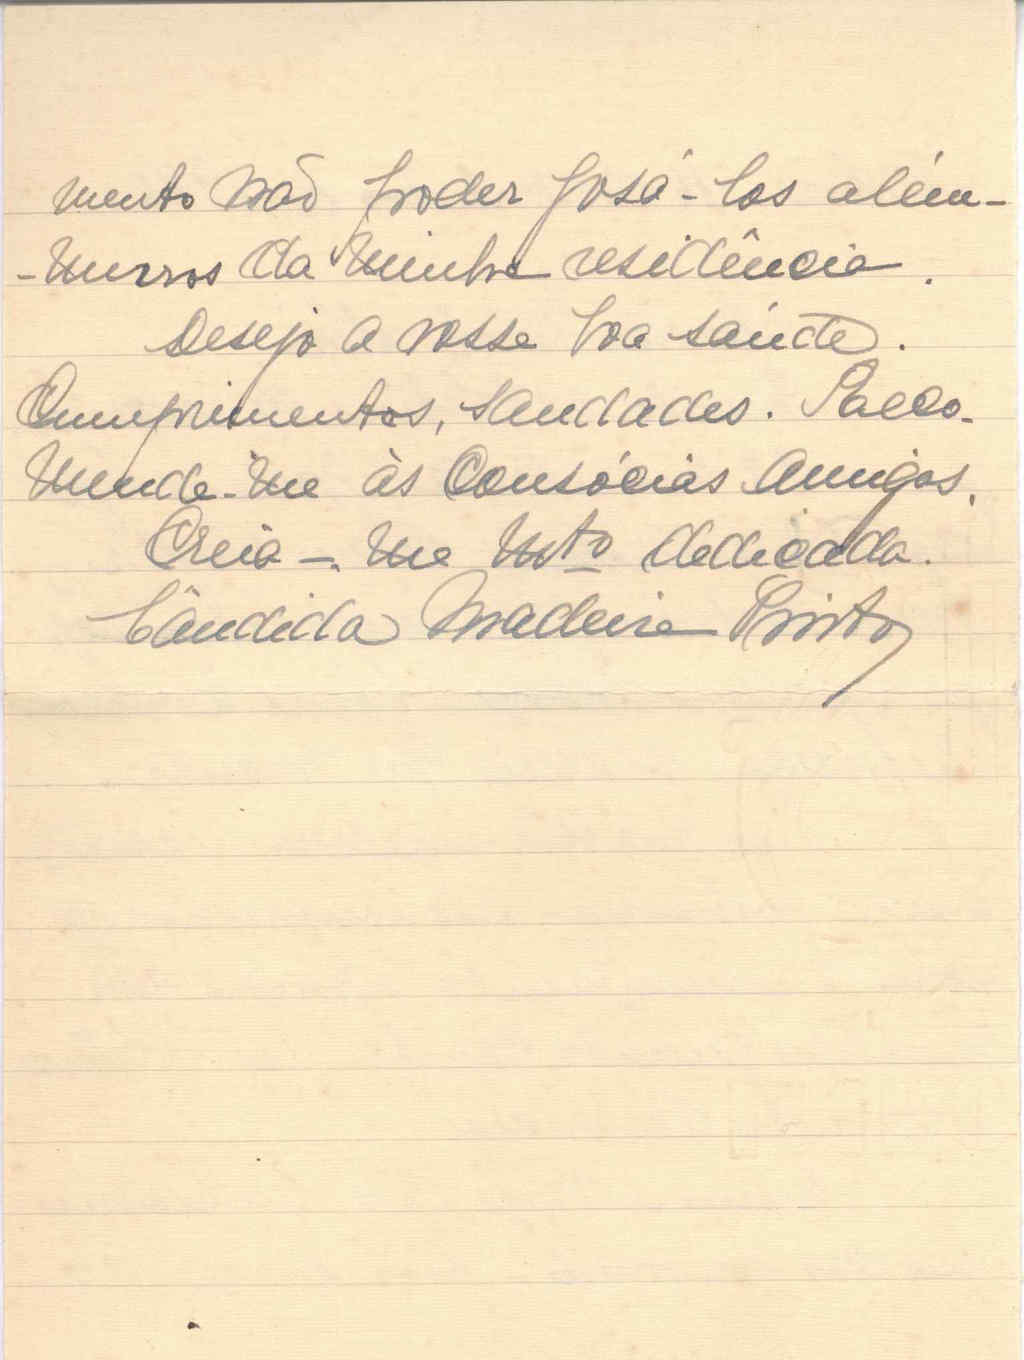 mento não poder gosá-los além-
-muros da minha residência.
Desejo a vossa boa saúde.
Cumprimentos, saudades. Reco-
mende-me às Consócias Amigas.
Creia-me Mto dedicada.
Cândida Madeira Pinto